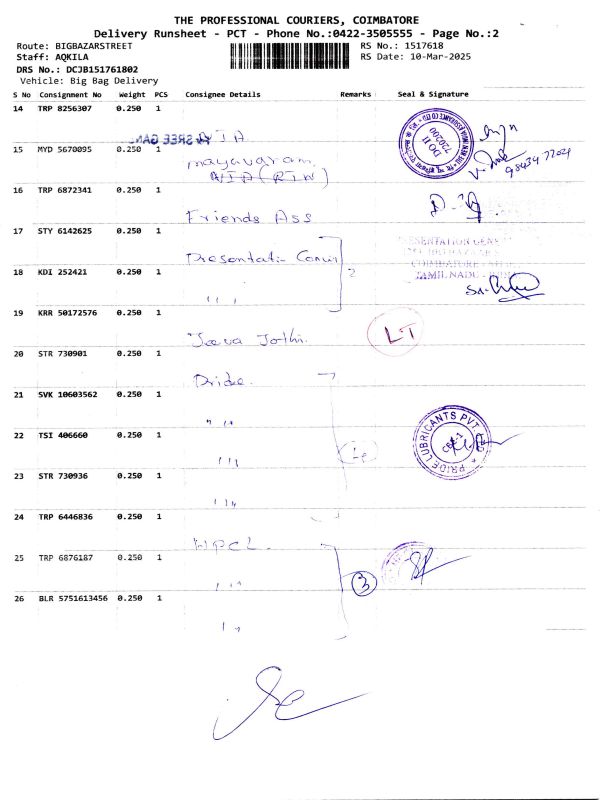 THE PROFESSIONAL COURIERS, COIMBATORE
Delivery Runsheet - PCT - Phone No.:0422-3505555 - Page No.:2
Route: BIGBAZARSTREET
Staff: AQKILA
DRS No.: DCJB151761802
Vehicle: Big Bag Delivery
RS No.: 1517618
RS Date: 10-Mar-2025
S No Consignment No Weight PCS Consignee Details Remarks Seal & Signature
14 TRP 8256307 0.250 1
NIA
15 MYD 5670095 0.250 1
mayavaram
NIA
DO II
720200
98434 77024
16 TRP 6872341 0.250 1
Friends Ass
17 STY 6142625 0.250 1
Presentati
18 KDI 252421 0.250 1
2
COIMBATORE
TAMIL NADU
19 KRR 50172576 0.250 1
Jeeva Jothi.
LT
20 STR 730901 0.250 1
Pride.
21 SVK 10603562 0.250 1
" "
22 TSI 406660 0.250 1
4
PRIDE LUBRICANTS PVT LTD
CBE-1
23 STR 730936 0.250 1
24 TRP 6446836 0.250 1
HPCL
25 TRP 6876187 0.250 1
3
26 BLR 5751613456 0.250 1